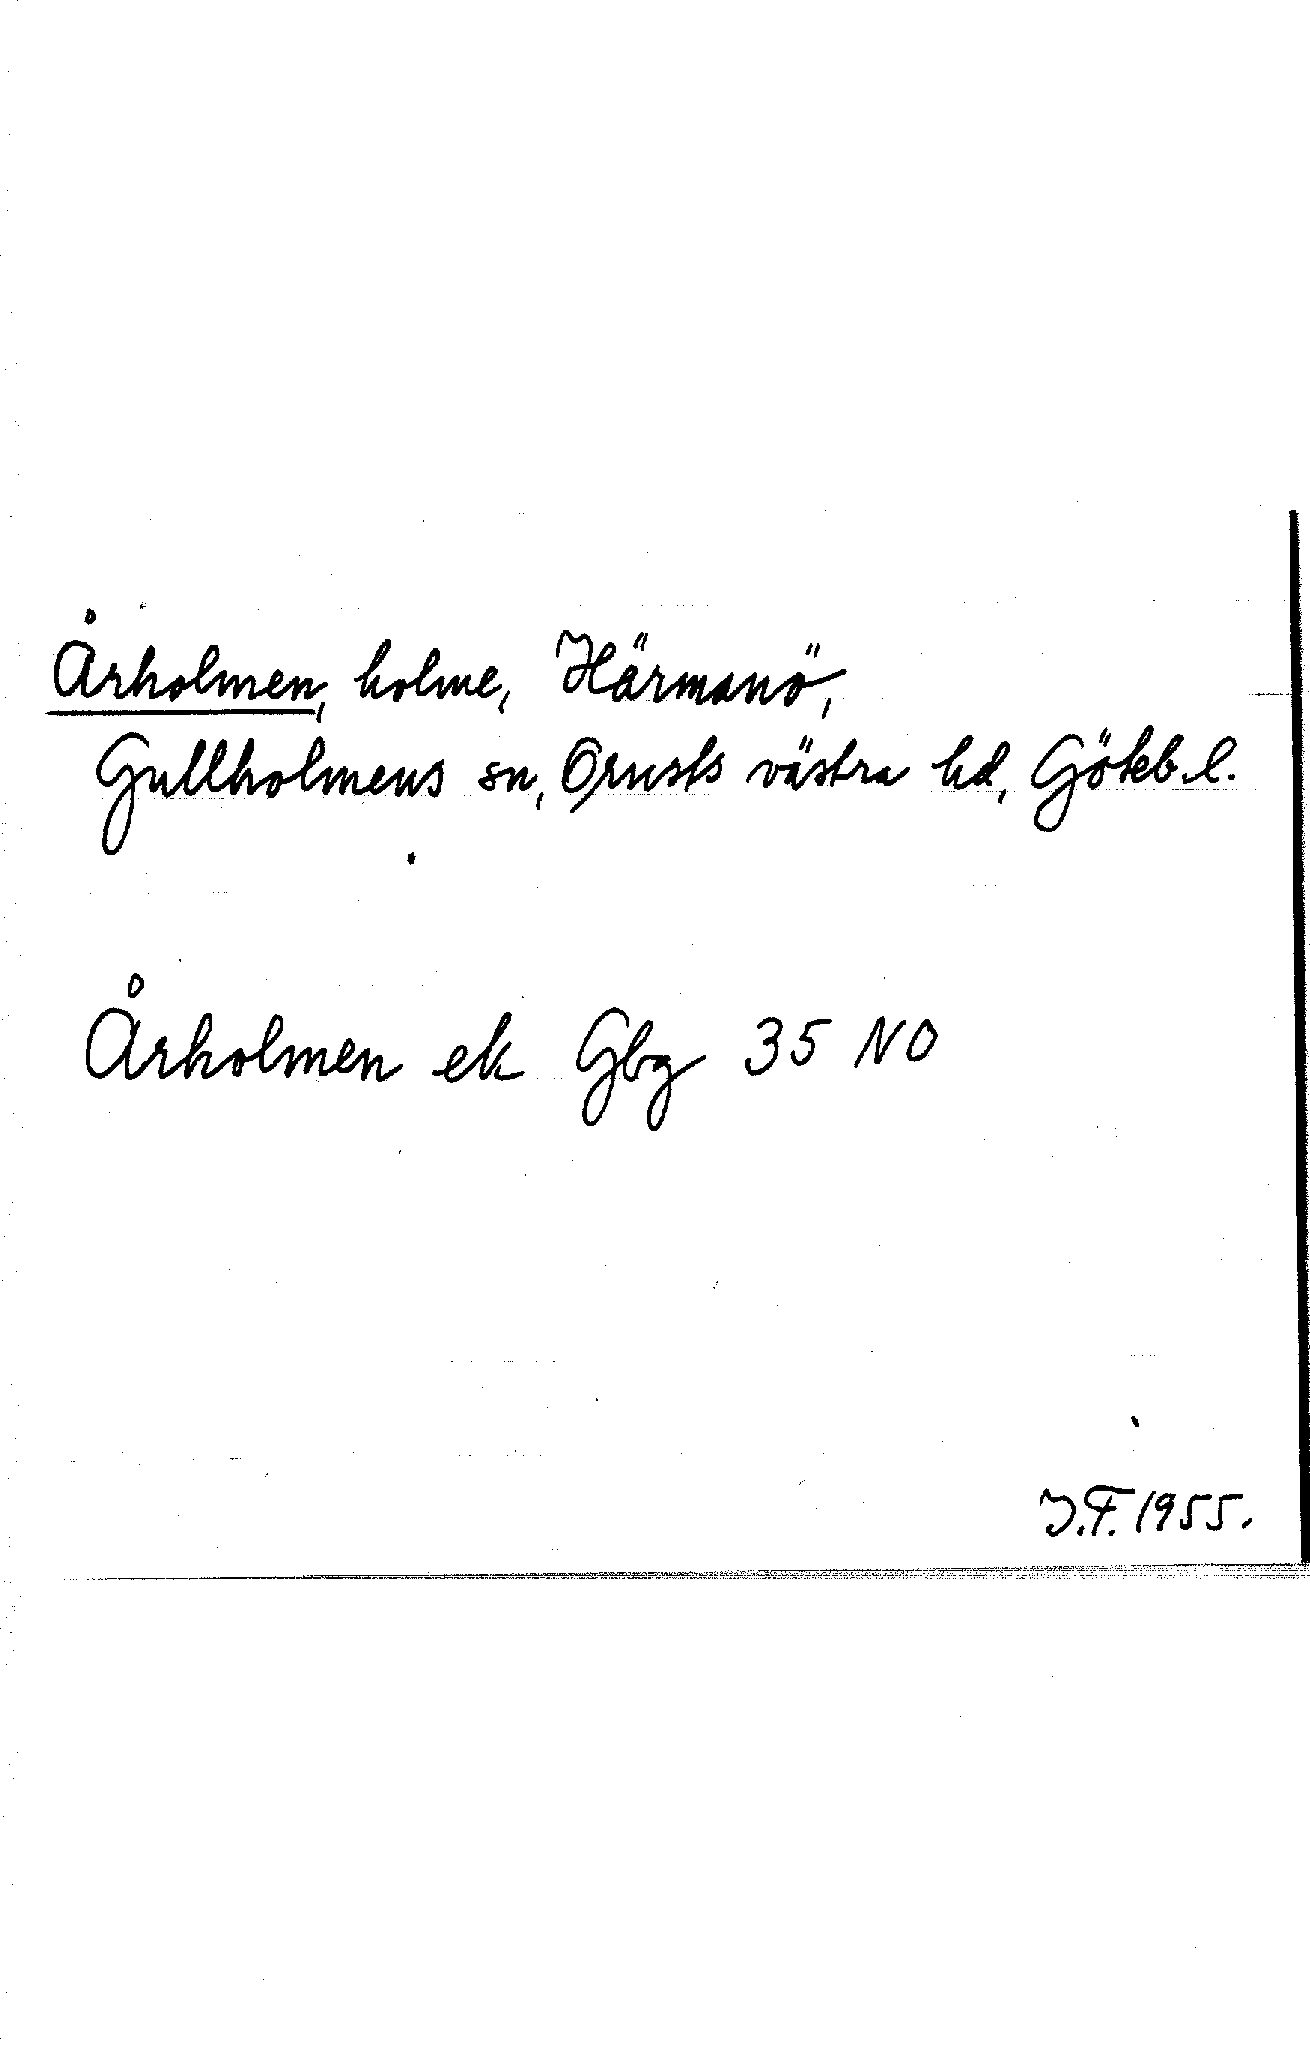 Århol­men, holme, Härmanö,
Gullholmens sn, Orusts västra hd, Götebl.
Århol­men ek Gbg 35 NO
I.F. 1955.